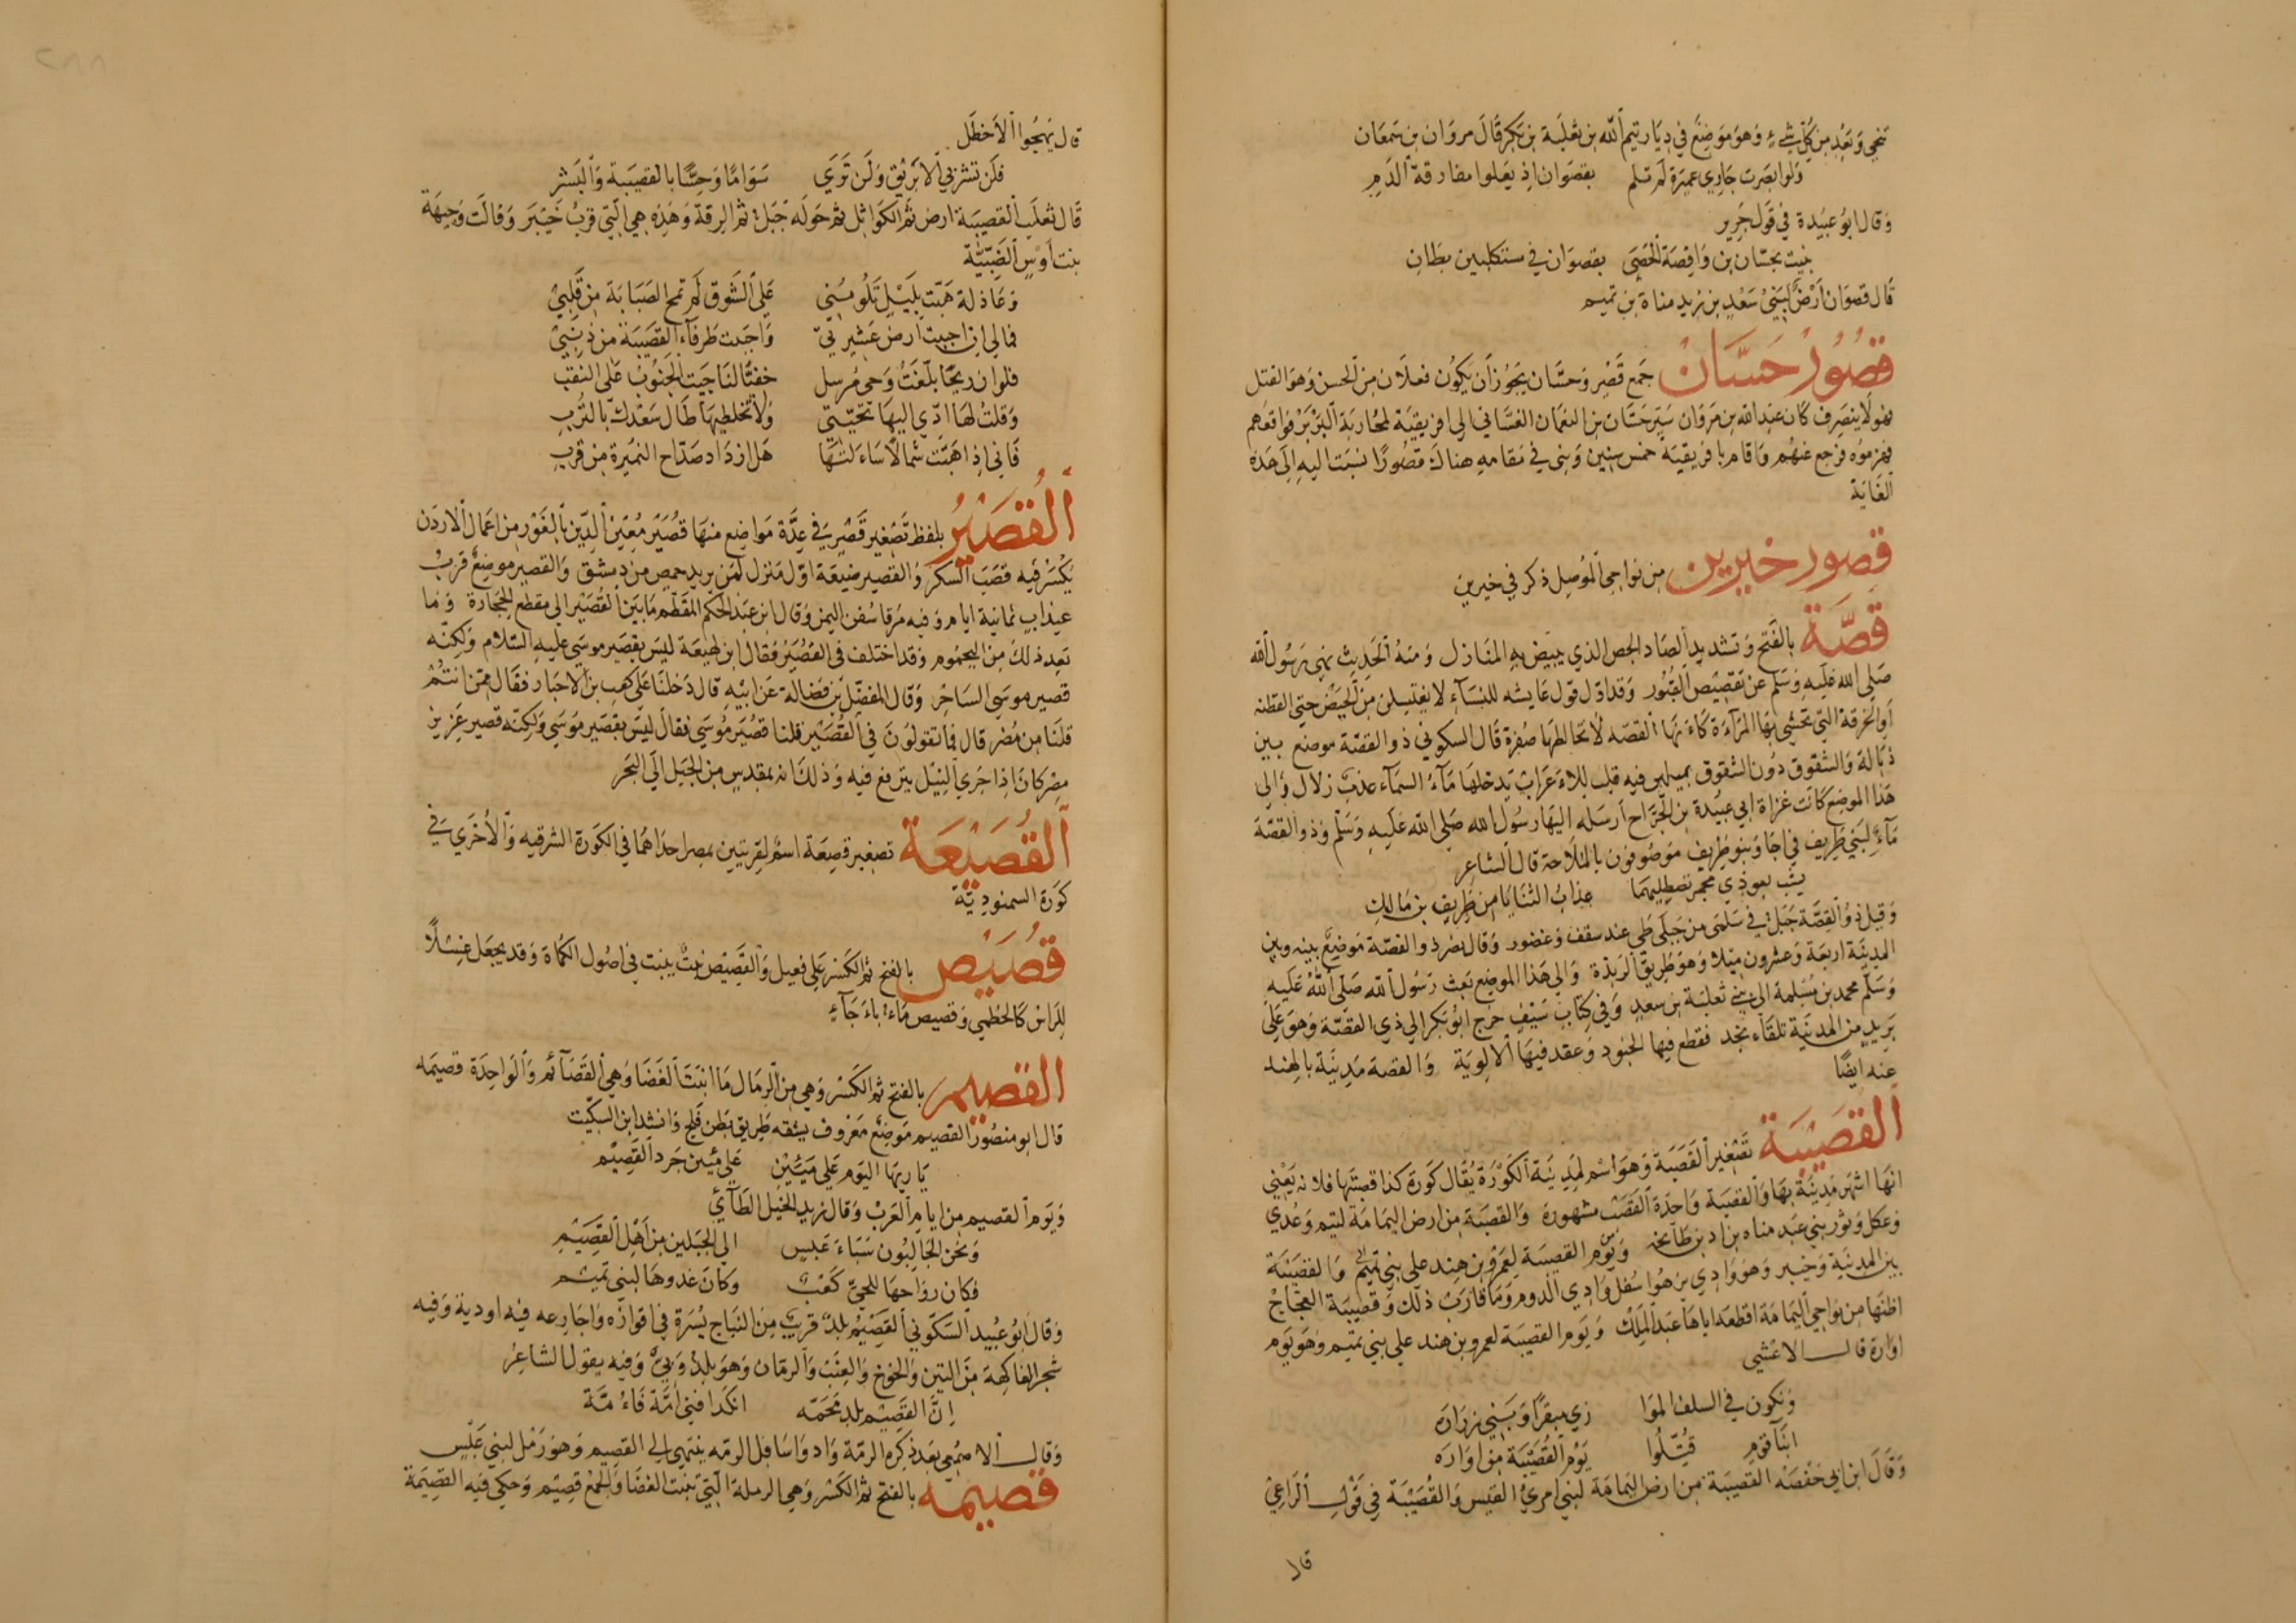 تنحي وبَعُد من كل شيء وهو موضع في ديار تيم الله بن ثعلبة بن بكر قال مروان بن سمعان
ولو ابصرت جاري عميرة لم تلم بقصوان اذ يعلوا مفارقة الدم
وقال ابو عبيدة في قول جرير
نبيت بحسّان بن واقصة الحصى بقصوان في مستكلبين بطان
قال قصوان ارض لبني سعد بن زيد مناة بن تميم
قصور حسّان جمع قصر وحسّان يجوز ان يكون فعلان من الحسن وهو القتل
فهو لا ينصرف كان عبد الله بن مروان سيّر حسّان بن النعمان الغسّاني الى افريقية لمحاربة البربر فواقعهم
فهزموه فرجع عنهم واقام بافريقية خمس سنين وبنى في مقامه هناك قصورًا نسبت اليه الى هذه
الغاية
قصور خيرين من نواحي الموصل ذكر في خيرين
قصّة بالفتح وتشديد الصاد الجص الذي يبيض به المنازل ومنه الحديث نهى رسول الله
صلى الله عليه وسلم عن تقصيص القبور وقد اوّل قول عايشه للنسآء لا يغتسلن من الحيض حتى القطنه
او الخرقة التي تحشي بها المرآءة كاءنها القصّه لا تخالطها صفرة قال السكوني ذو القصّة موضع بين
ذبالة والشقوق دون الشقوق بميلين فيه قلب للاءعراب يدخلها مآء السمآء عذب زلال والى
هذا الموضع كانت غزاة ابي عبيدة بن الجرّاح ارسله اليها رسول الله صلى الله عليه وسلم وذو القصّة
مآء لبني طريف في اجا وبنو طريف موصوفون بالملاحة قال الشاعر
يشب بعوذي مجمر تصطليهما عذاب الثنايا من طريف بن مالك
وقيل ذو القصّة جبل في سلمى من جبلي طي عند سقف وغضور وقال نصر ذو القصّة موضع بينه وبين
المدينة اربعة وعشرون ميلا وهو طريق الربذة والى هذا الموضع بعث رسول الله صلى الله عليه
وسلم محمد بن مسلمة الى بني ثعلبة بن سعد وفي كتاب سيف خرج ابو بكر الى ذي القصّة وهو على
بريد من المدينة تلقاء نجد فقطع فيها الجنود وعقد فيها الالوية والقصة مدينة بالهند
عنه ايضًا
القصيبة تصغير القصبة وهو اسم لمدينة الكورة يقال كورة كذا قصبتها فلانه يعني
انها اشهر مدينة بها والقصبة واحدة القصب مشهورة والقصبة من ارض اليمامة لتيم وعدي
وعكل وثور بني عبد مناه بن اد بن طابخه ويوم القصيبة لعمرو بن هند على بني تميم والقصيبة
بين المدينة وخيبر وهو وادي يزهوا سفل وادي الدوم وما قارب ذلك وقصيبة العجّاج
اظنها من نواحي اليمامة اقطعه اياها عبد الملك ويوم القصيبة لعمرو بن هند على بني تميم وهو يوم
اوارة قال الاعشي
وتكون في السلف الموا زي مبقرًا وبني زرارة
ابنآ قوم قُتّلوا يوم القُصيبة من اواره
وقال ابن ابي حفصه القصيبة من ارض اليمامة لبني امرئ القيس والقصيبة في قول الراعي
قال
قال يهجوا الاخطل
فلن تشربي الا بَرَنْق ولن تري سَواما وحيًّا بالقصيبة والبشر
قال ثعلب القصيبة ارض ثم الكواثل ثم حوله جبل ثم الرقة وهذه هي التي قرب خيبر وقالت وجيهة
بنت اوس الضبّيّة
وعاذلة هبّت بليل تلومني على الشوق لم تمح الصبابة من قلبي
فمالي ان احببت ارض عشيرتي واحببت طرفآء القصيبة من ذنبي
فلو ان ريحًا بلّغت وحي مرسل حفيّ لناجيت الجنوب على النقب
وقلت لها ادّي اليها تحيّتي ولا تخلطيها طال سعدك بالترب
فاني اذا هبّت شمالا ساءلتها هل ازداد صدّاح النميرة من قرب
القصير بلفظ تصغير قصير في عدّة مواضع منها قصير معين الدين بالغور من اعمال الاردن
يكثر فيه قصب السكر والقصير ضيعة اول منزل لمن يريد حمص من دمشق والقصير موضع قرب
عيذاب ثمانية ايام وفيه مرقا سفن اليمن وقال ابن عبد الحكم المقطم ما بين القصير الى مقطع الحجارة وما
بعد ذلك من اليحموم وقد اختلف في القصير فقال ابن لهيعة ليس بقصير موسى عليه السلام ولكنّه
قصير موسى الساحر وقال المفضّل بن فضالة عن ابيه قال دخلنا على كعب بن الاحبار فقال ممن انتم
قلنا من مصر قال فما تقولون في القصير قلنا قصير موسى فقال ليس بقصير موسى ولكنّه قصير عزيز
مصر كان اذا جري النيل يترفع فيه وذلك انه لمقدس من الجبل الى البحر
القصيعة تصغير قصعة اسم لقريتين بمصر احداهما في الكورة الشرقيه والاخري في
كورة السمنوديّة
قصيص بالفتح ثم الكسر على فعيل والقصيص نبت ينبت في اصول الكماة وقد يجعل غسلًا
للراس كالخطمي وقصيص ماء باءجآء
القصيم بالفتح ثم الكسر وهي من الرمال ما انبت الغضا وهي القصآئم والواحدة قصيمه
قال ابو منصور القصيم موضع معروف يشقه طريق بطن فلج وانشد ابن السكيت
يا ريها اليوم على مبين على مبين جرد القصيم
ويوم القصيم من ايام العرب وقال زيد الخيل الطآئي
ونحن الجالبون سباء عبس الى الجبلين من اهل القصيم
فكان رواحها للحيّ كعب وكان غدوها لبني تميم
وقال ابو عبيد السكوني القصيم بلد قريب من النباج يسرة في اقوازه واجارعه فيه اودية وفيه
شجر الفاكهة من التين والخوخ والعنب والرمان وهو بلد وبيّ وفيه يقول الشاعر
انّ القصيم بلد محمّه انكدا فنى امّة فاءمّة
وقال الاصمعي بعد ذكره الرمة واد واسافل الرمّه ينتهي الى القصيم وهو رمل لبني عبس
قصيمه بالفتح ثم الكسر وهي الرملة التي تنبت الغضا والجمع قصيم وحكي فيه القصيمة
٢٨٨